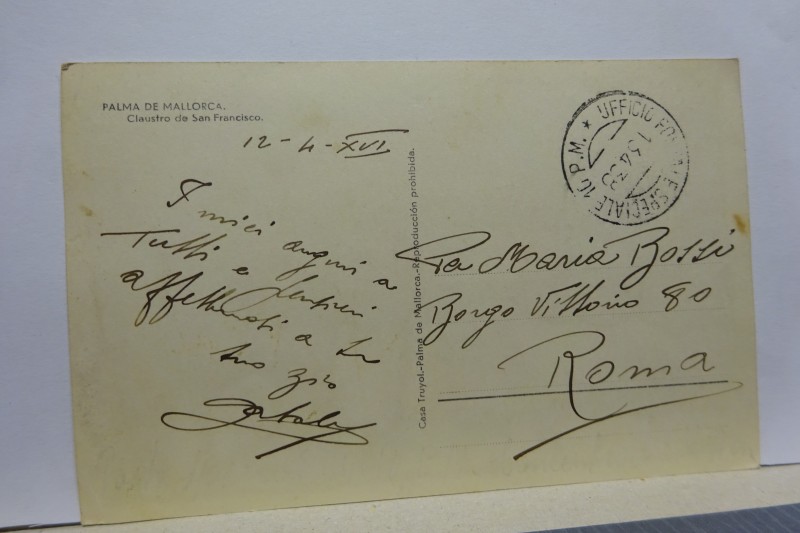 PALMA DE MALLORCA.
Claustro de San Francisco.
12-4-XVI
I miei auguri a
Tutti e
affettuosi a te
tuo zio
Casa Truyol.-Palma de Mallorca.-Reproducción prohibida.
UFFICIO POSTALE SPECIALE 10 P.M. *
13.4.38
Maria Bossi
Borgo Vittorio 80
Roma